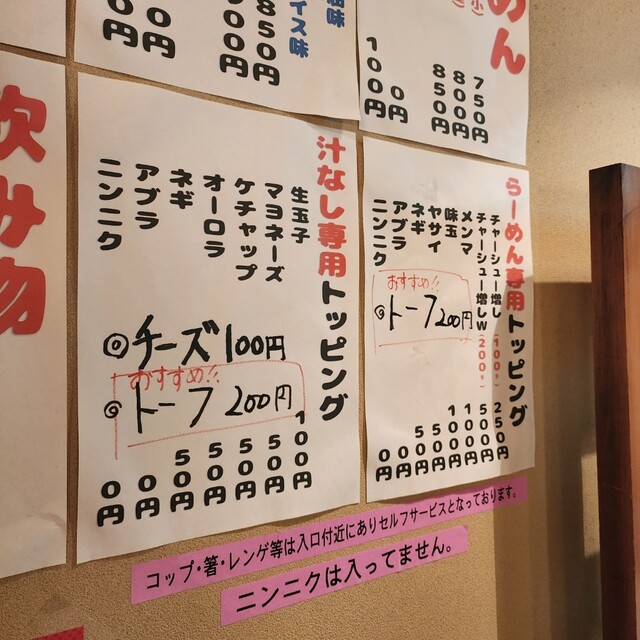 めん
750円
800円
850円
0円
100円
イス味
850円
飲み物
らーめん専用トッピング
チャーシュー増し(100g) 250円
チャーシュー増しW(200g) 500円
メンマ 100円
味玉 100円
ヤサイ 50円
ネギ 50円
アブラ 0円
ニンニク 0円
おすすめ!!
◎トーフ 200円
汁なし専用トッピング
生玉子 100円
マヨネーズ 50円
ケチャップ 50円
オーロラ 50円
ネギ 50円
アブラ 0円
ニンニク 0円
◎チーズ 100円
おすすめ!!
◎トーフ 200円
コップ・箸・レンゲ等は入口付近にありセルフサービスとなっております。
ニンニクは入ってません。